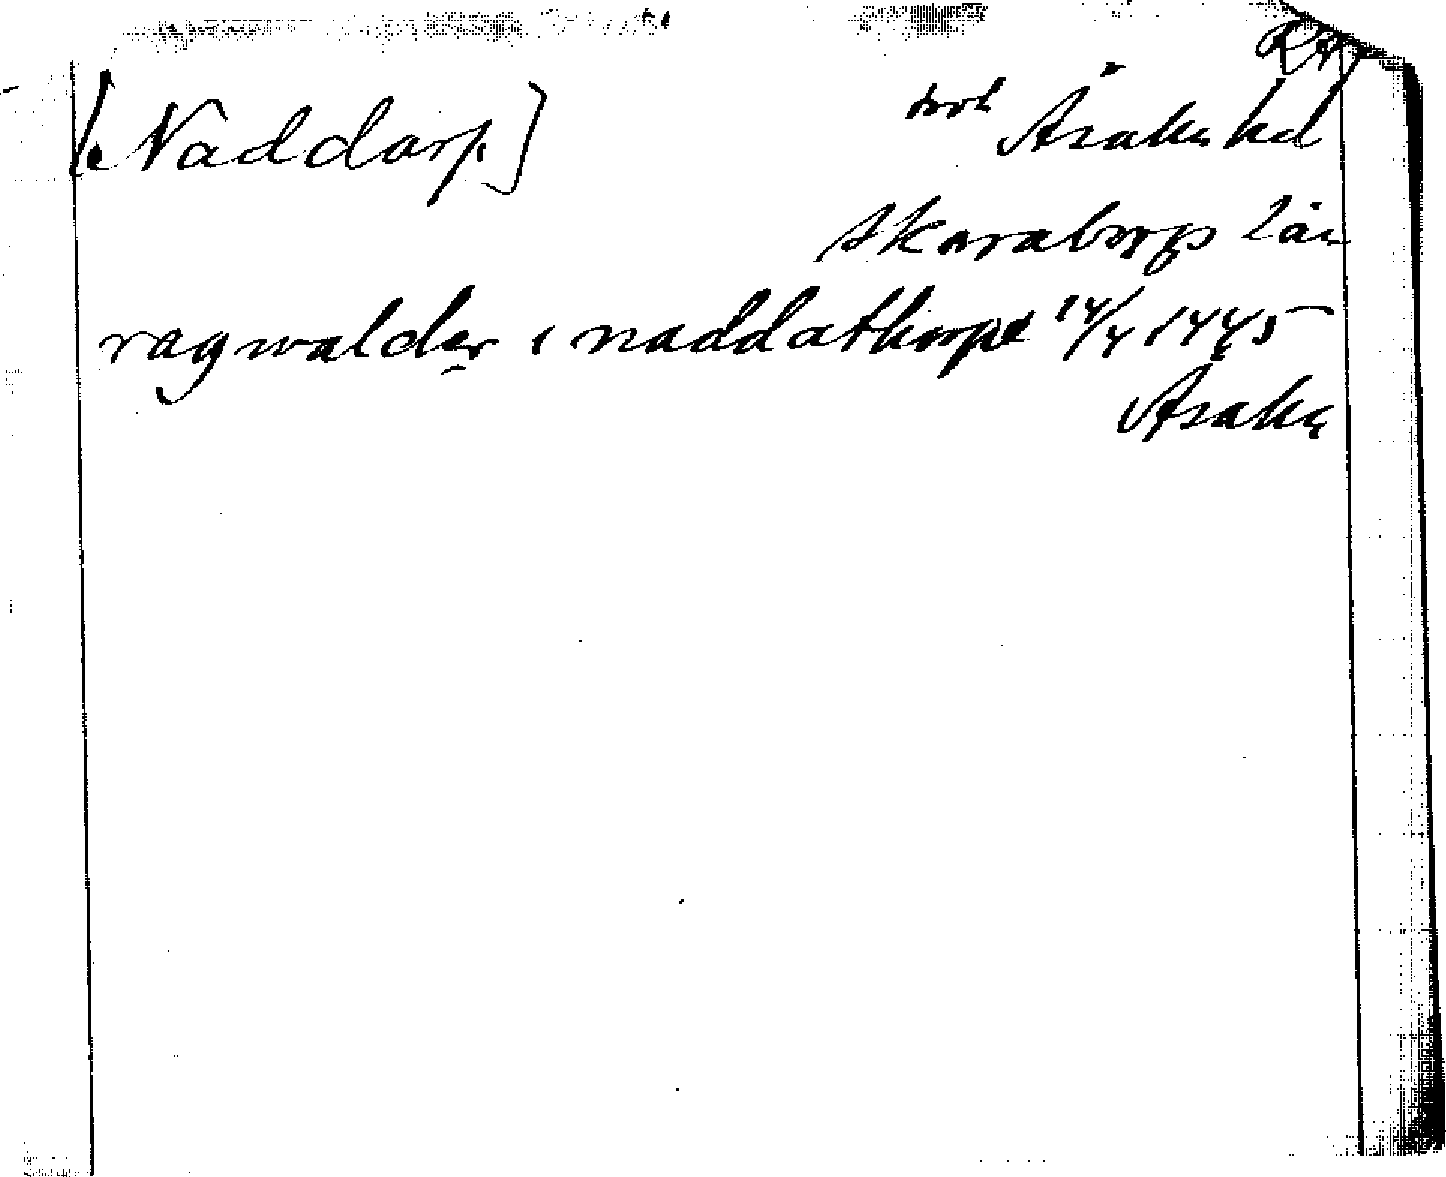 [Naddarp.] Åsaka hd
Skaraborgs län
ragwalder i naddathorpe 14/4 1445
Åsaka